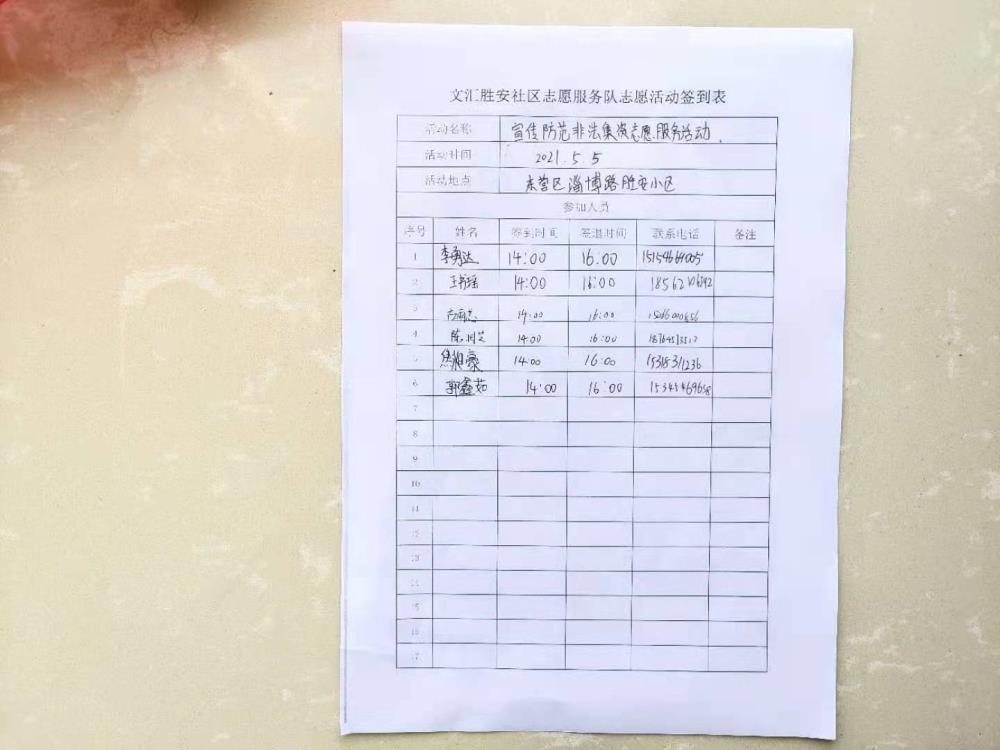 文汇胜安社区志愿服务队志愿活动签到表
活动名称 宣传防范非法集资志愿服务活动.
活动时间 2021.5.5
活动地点 东营区淄博路胜安小区
参加人员
序号 姓名 签到时间 签退时间 联系电话 备注
1 李勇达 14:00 16:00
2 14:00 16:00
3 14:00 16:00
4 14:00 16:00
5 14:00 16:00 15318311236
6 郭鑫茹 14:00 16:00
7
8
9
10
11
12
13
14
15
16
17